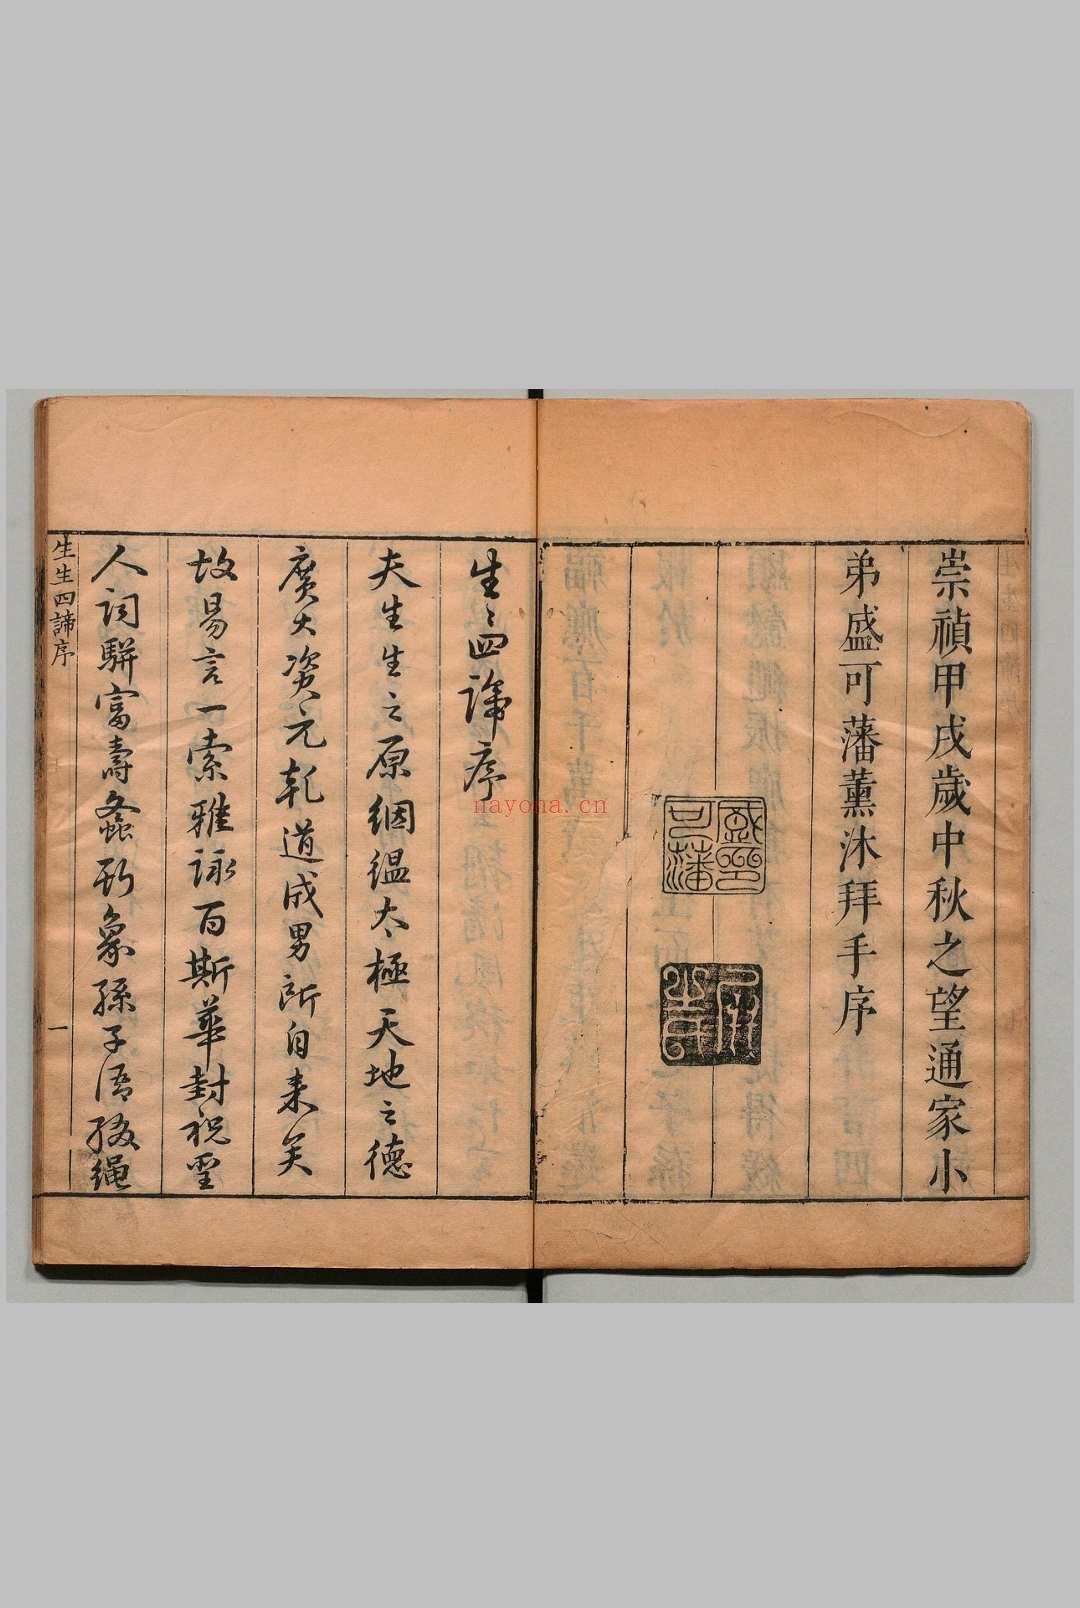 崇禎甲戌歲中秋之望通家小
弟盛可藩薰沐拜手序
生〻四諦序
夫生生之原絪縕太極天地之德
廣大資元乾道成男所自来矣
故易言一索雅詠百斯華封祝聖
人詞駢富壽螽斯象孫子语
繩
生生四諦序
一
nayona.cn